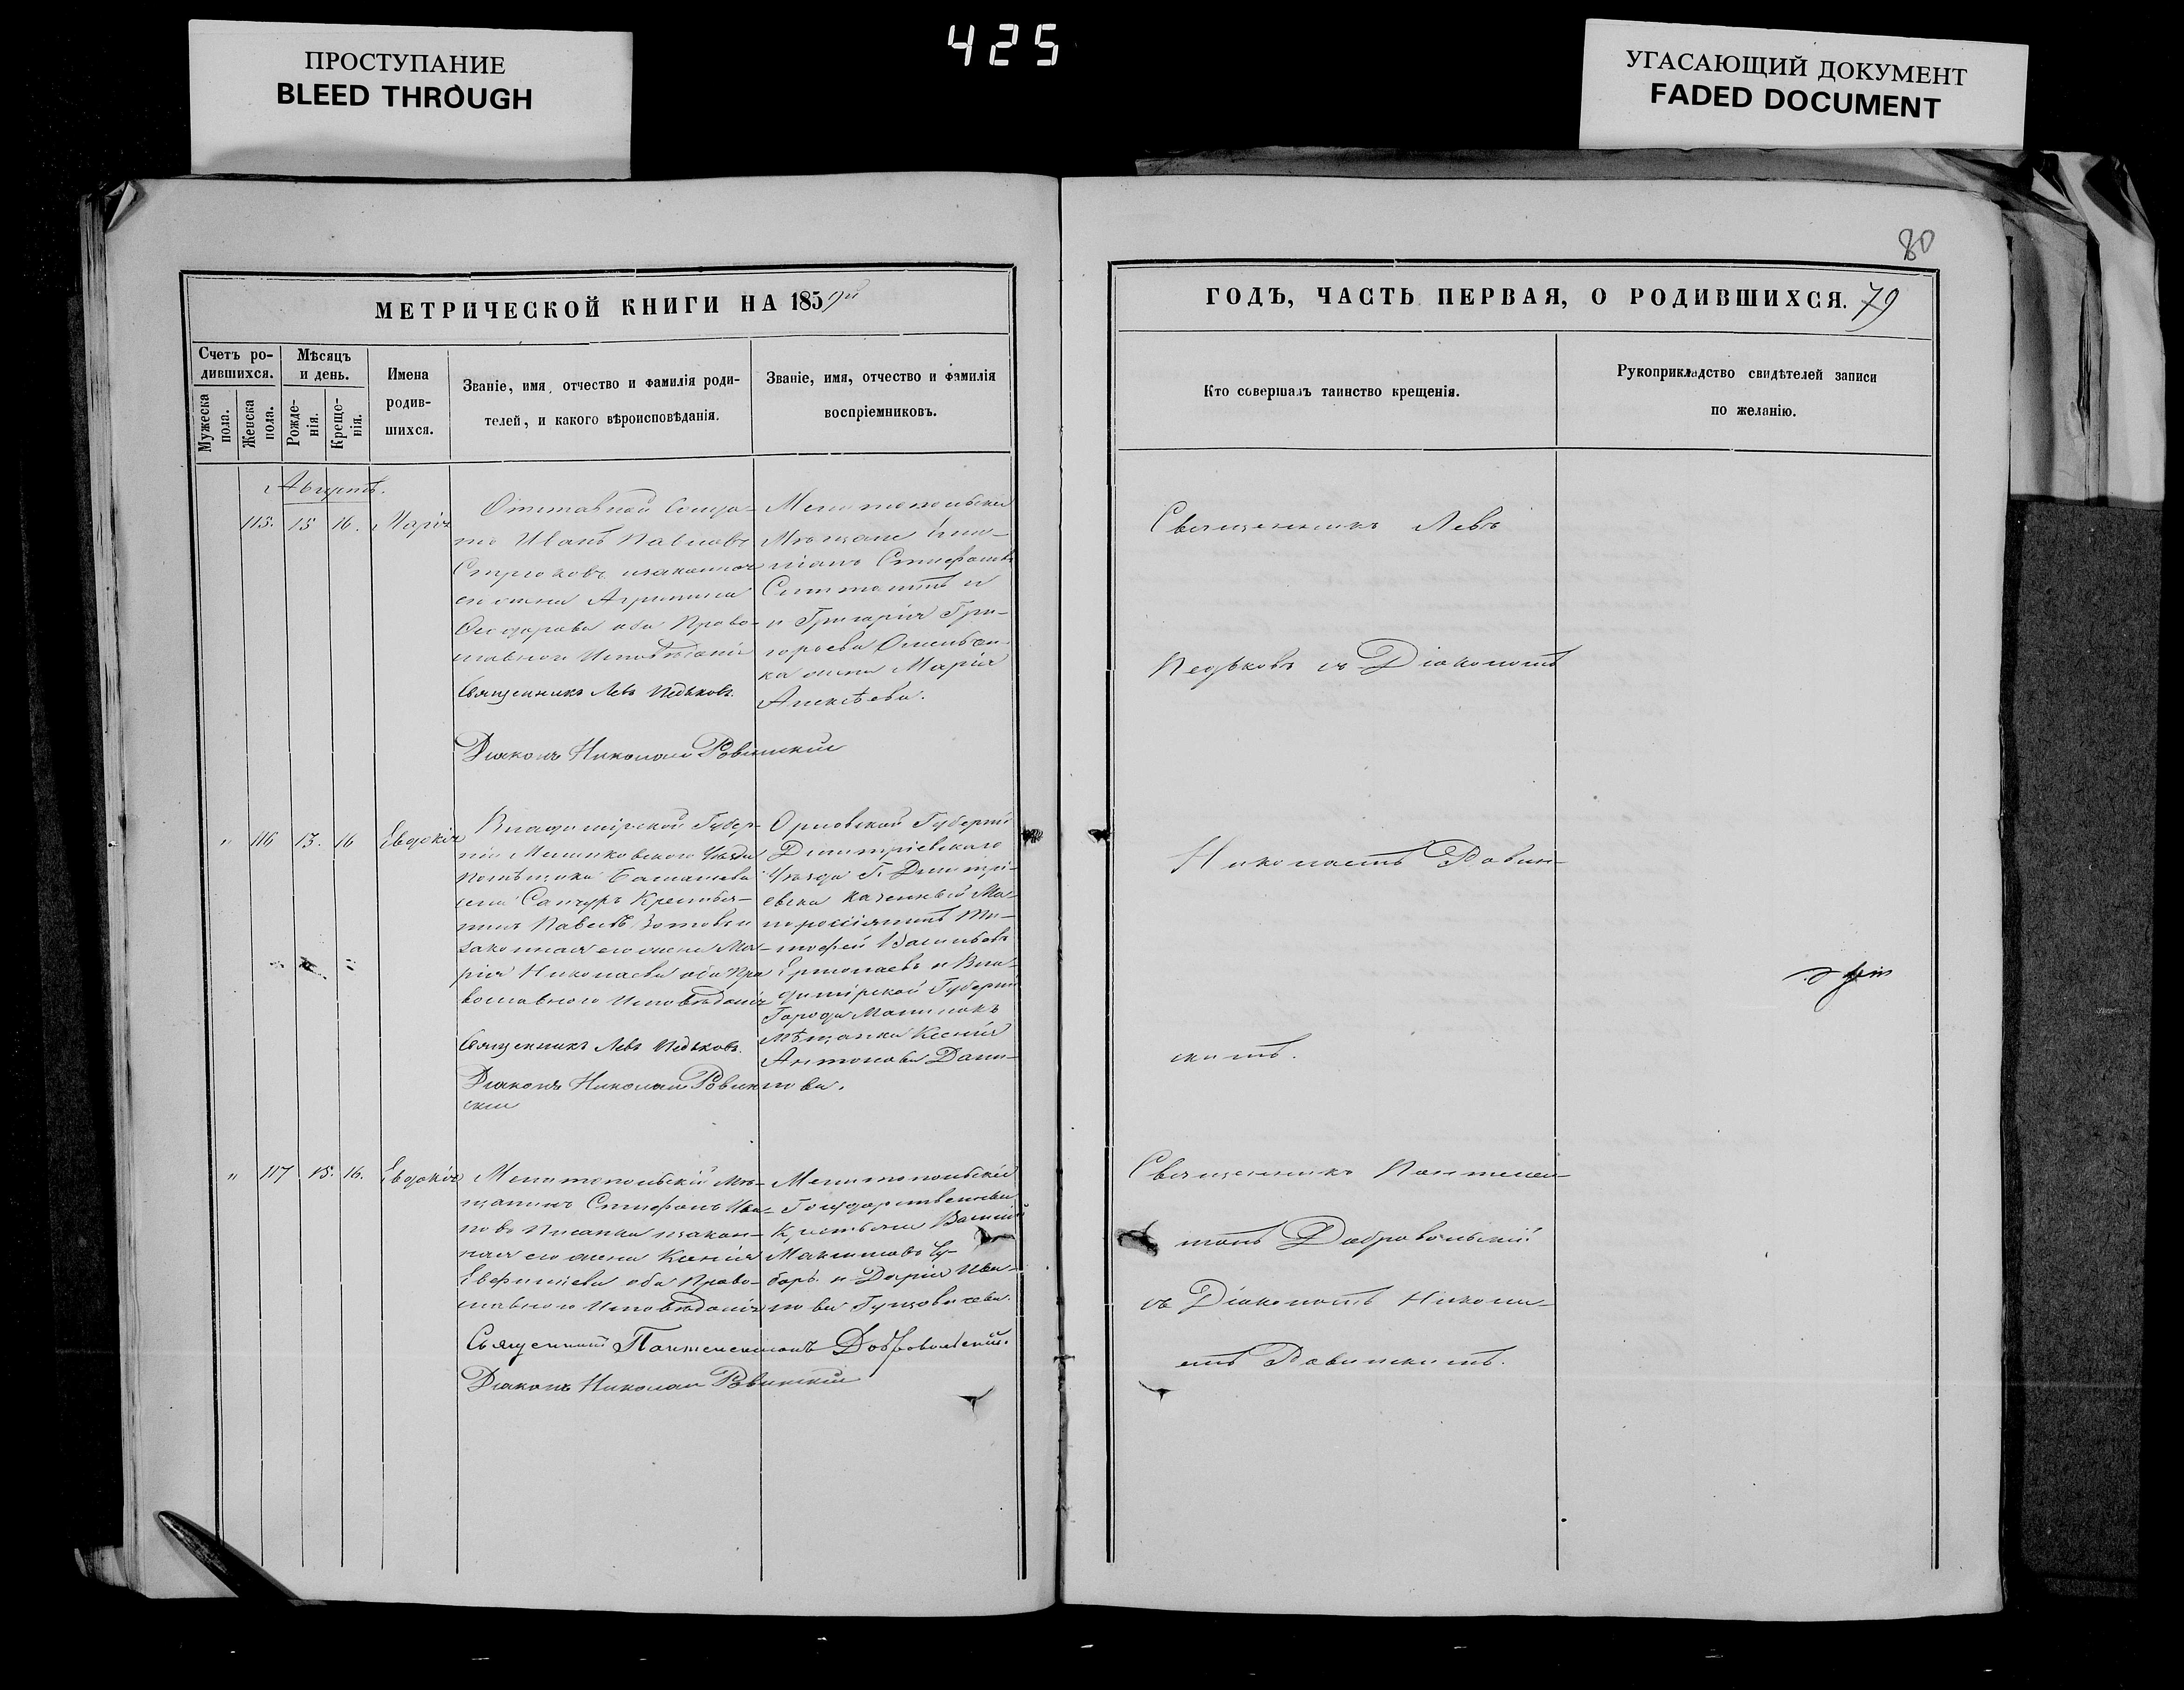 ПРОСТУПАНИЕ
BLEED THROUGH
425
УГАСАЮЩИЙ ДОКУМЕНТ
FADED DOCUMENT
80
МЕТРИЧЕСКОЙ КНИГИ НА 1859й
Счетъ ро-
дившихся.
Мужеска
пола.
Женска
пола.
Мѣсяцъ
и день.
Рожде-
нія.
Креще-
нія.
Имена
родив-
шихся.
Званіе, имя, отчество и фамилія роди-
телей, и какого вѣроисповѣданія.
Званіе, имя, отчество и фамилія
воспріемниковъ.
Августъ.
115. 15 16. Марія
Отставной Солда-
тъ Иванъ Павловъ
Стрюковъ изаконная
его жена Агрипина
Ѳеодорова оба Право-
славнаго Исповѣданія
Священникъ Левъ Педьковъ.
Діаконъ Николай Ровинскій
Мелитопольскій
Мѣщане
Стефановъ
и
и Григорія Гри-
горьева Омельчен-
ка жена Марія
Алексѣева.
" 116 13. 16 Евдокія
Владимірской Губер-
ніи Меленковскаго Уѣзда
Помѣщика Баташева
села Сапчуръ Крестья-
нинъ Павелъ Зотовъ и
законная его жена Ма-
рія Николаева оба Пра
вославнаго Исповѣданія
Священникъ Левъ Педьковъ.
Діаконъ Николай Ровин
скій
Орловской Губерніи
Дмитріевскаго
Уѣзда Г. Дмитрі-
евска казенный Ма-
лороссіянинъ Ти-
мофей Васильевъ
Ермолаевъ и Вла-
димірской Губерніи
Города
Мѣщанка Ксенія
Антонова Дани-
лова.
" 117 15. 16. Евдокія
Мелитопольскій Мѣ-
щанинъ Стефанъ Ива-
новъ Писанка изакон-
ная его жена Ксенія
Евфиміева оба Право-
славнаго Исповѣданія
Священникъ Пантелеимонъ Добровольскій.
Діаконъ Николай Ровинскій
Мелитопольскіе
Государственные
Крестьяне Василій
Максимовъ Чу-
боръ и Дарія Ива-
нова
ГОДЪ, ЧАСТЬ ПЕРВАЯ, О РОДИВШИХСЯ. 79
Кто совершалъ таинство крещенія.
Рукоприкладство свидѣтелей записи
по желанію.
Священникъ Левъ
Педьковъ съ Діакономъ
Николаемъ Ровин-
скимъ.
Священникъ Пантелеи-
монъ Добровольскій
съ Діакономъ Никола-
емъ Ровинскимъ.